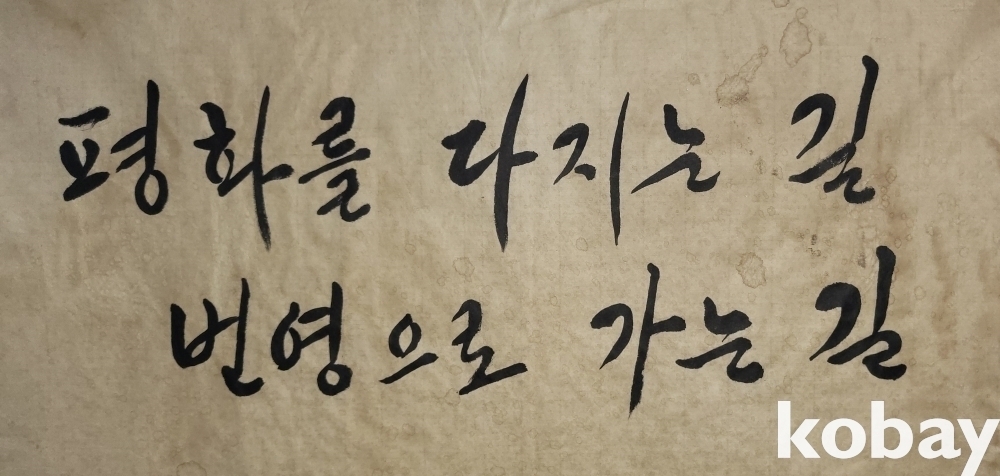 평화를 다지는 길
번영으로 가는 길
kobay